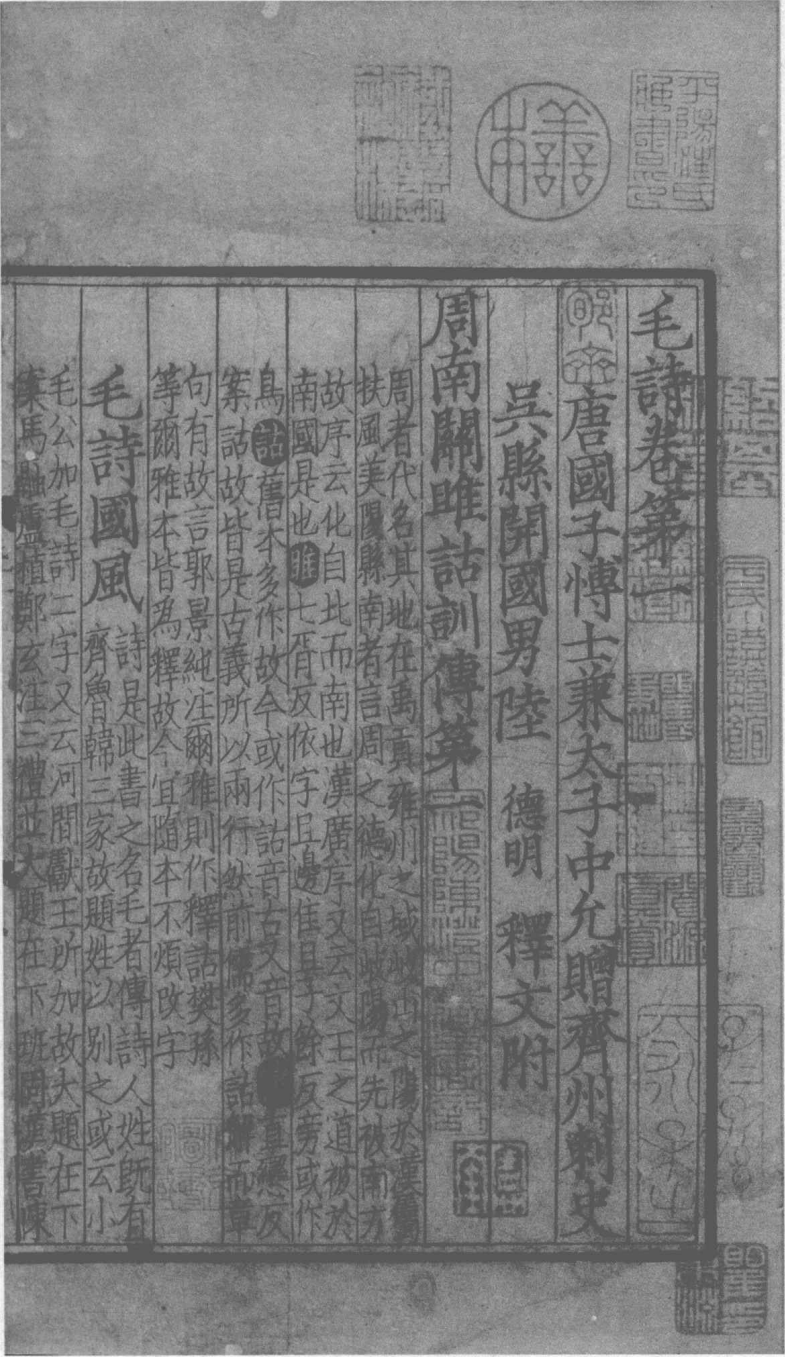 毛詩卷第一
唐國子愽士兼太子中允贈齊州刺史
吳縣開國男陸 德明 釋文附
周南關雎詁訓傳第一
周者代名其地在禹貢雍州之域岐山之陽於漢屬
扶風美陽縣南者言周之德化自岐陽而先被南方
故序云化自北而南也漢廣序又云文王之道被於
南國是也雎七胥反依字且邊隹且音子餘反旁或作
鳥詁舊本多作故今或作詁音古又音故 直戀反
案詁故皆是古義所以兩行然前儒多作詁解而章
句有故言郭景純注爾雅則作釋詁樊孫
等爾雅本皆為釋故今宜隨本不煩改字
毛詩國風
詩是此書之名毛者傳詩人姓既有
齊魯韓三家故題姓以別之或云小
毛公加毛詩二字又云河間獻王所加故大題在下
案馬融盧植鄭玄注三禮並大題在下班固漢書陳
善本